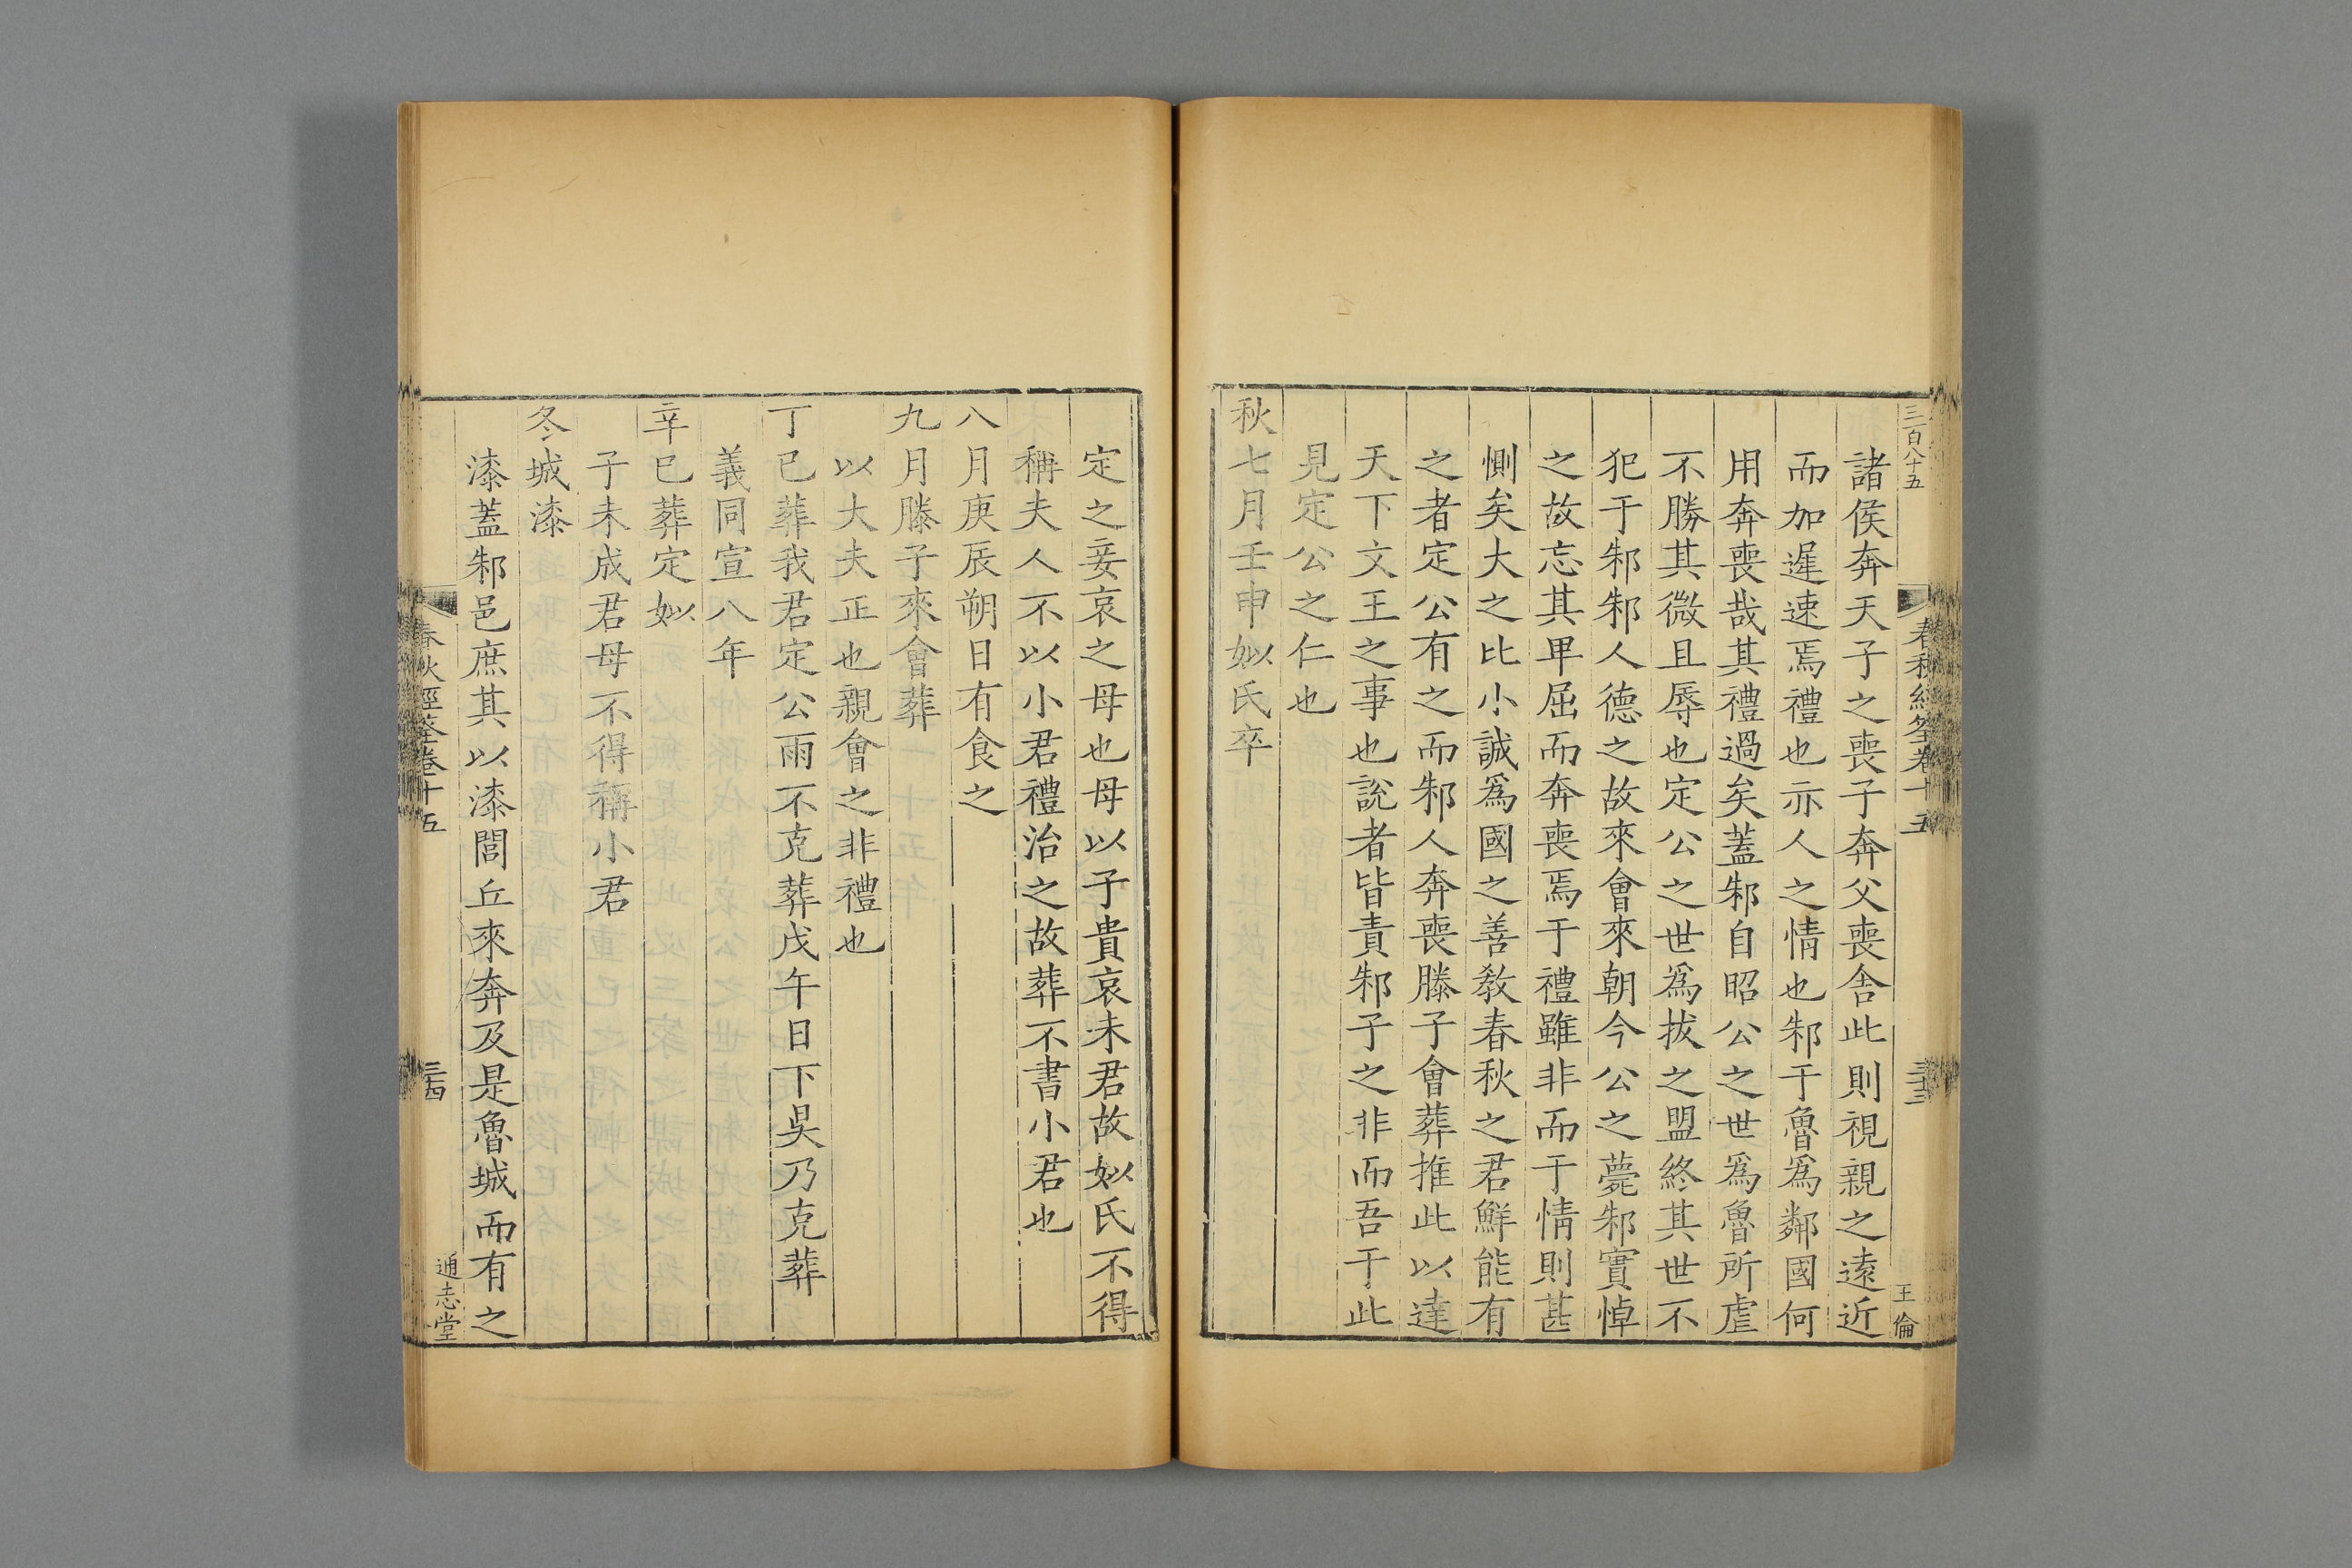 三百八十五
諸侯奔天子之喪子奔父喪舍此則視親之遠近
而加遲速焉禮也亦人之情也邾于魯爲鄰國何
用奔喪哉其禮過矣蓋邾自昭公之世爲魯所虐
不勝其微且辱也定公之世爲拔之盟終其世不
犯于邾邾人德之故來會來朝今公之薨邾實悼
之故忘其卑屈而奔喪焉于禮雖非而于情則甚
惻矣大之比小誠爲國之善教春秋之君鮮能有
之者定公有之而邾人奔喪滕子會葬推此以達
天下文王之事也說者皆責邾子之非而吾于此
見定公之仁也
秋七月壬申姒氏卒
春秋經筌卷十五
三十三
王倫
定之妾哀之母也母以子貴哀未君故姒氏不得
稱夫人不以小君禮治之故葬不書小君也
八月庚辰朔日有食之
九月滕子來會葬
以大夫正也親會之非禮也
丁巳葬我君定公雨不克葬戊午日下昃乃克葬
義同宣八年
辛巳葬定姒
子未成君母不得稱小君
冬城漆
漆蓋邾邑庶其以漆閭丘來奔及是魯城而有之
春秋經筌卷十五
三十四
通志堂